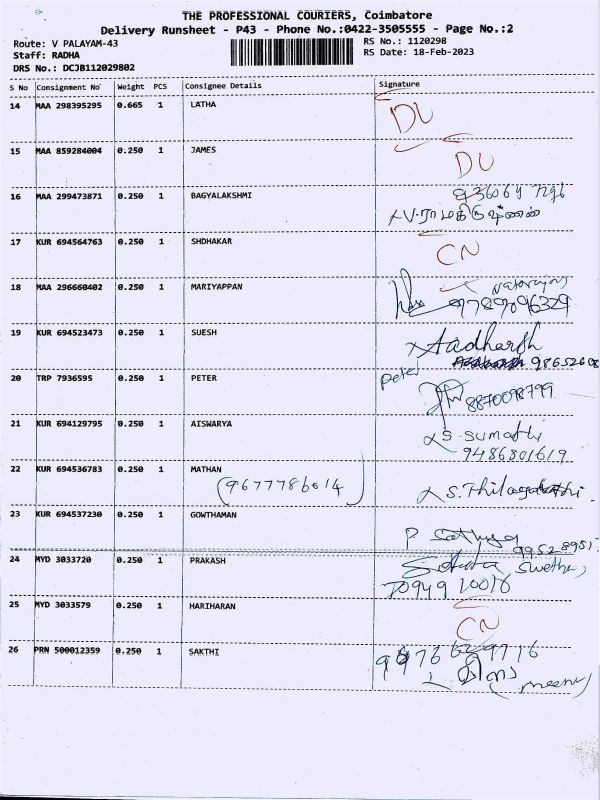 THE PROFESSIONAL COURIERS, Coimbatore
Delivery Runsheet - P43 - Phone No.:0422-3505555 - Page No.:2
Route: V PALAYAM-43
RS No.: 1120298
Staff: RADHA
RS Date: 18-Feb-2023
DRS No.: DCJB112029802
S No Consignment No Weight PCS Consignee Details Signature
14 MAA 298395295 0.665 1 LATHA DU
15 MAA 859284004 0.250 1 JAMES DU
16 MAA 299473871 0.250 1 BAGYALAKSHMI
17 KUR 694564763 0.250 1 SHDHAKAR CN
18 MAA 296660402 0.250 1 MARIYAPPAN 9789096329
19 KUR 694523473 0.250 1 SUESH Aadharsh
20 TRP 7936595 0.250 1 PETER peter
8870098799
21 KUR 694129795 0.250 1 AISWARYA S. Sumathi
9486801619
22 KUR 694536783 0.250 1 MATHAN
(9677786014)
23 KUR 694537230 0.250 1 GOWTHAMAN
24 MYD 3033720 0.250 1 PRAKASH
25 MYD 3033579 0.250 1 HARIHARAN CN
26 PRN 500012359 0.250 1 SAKTHI